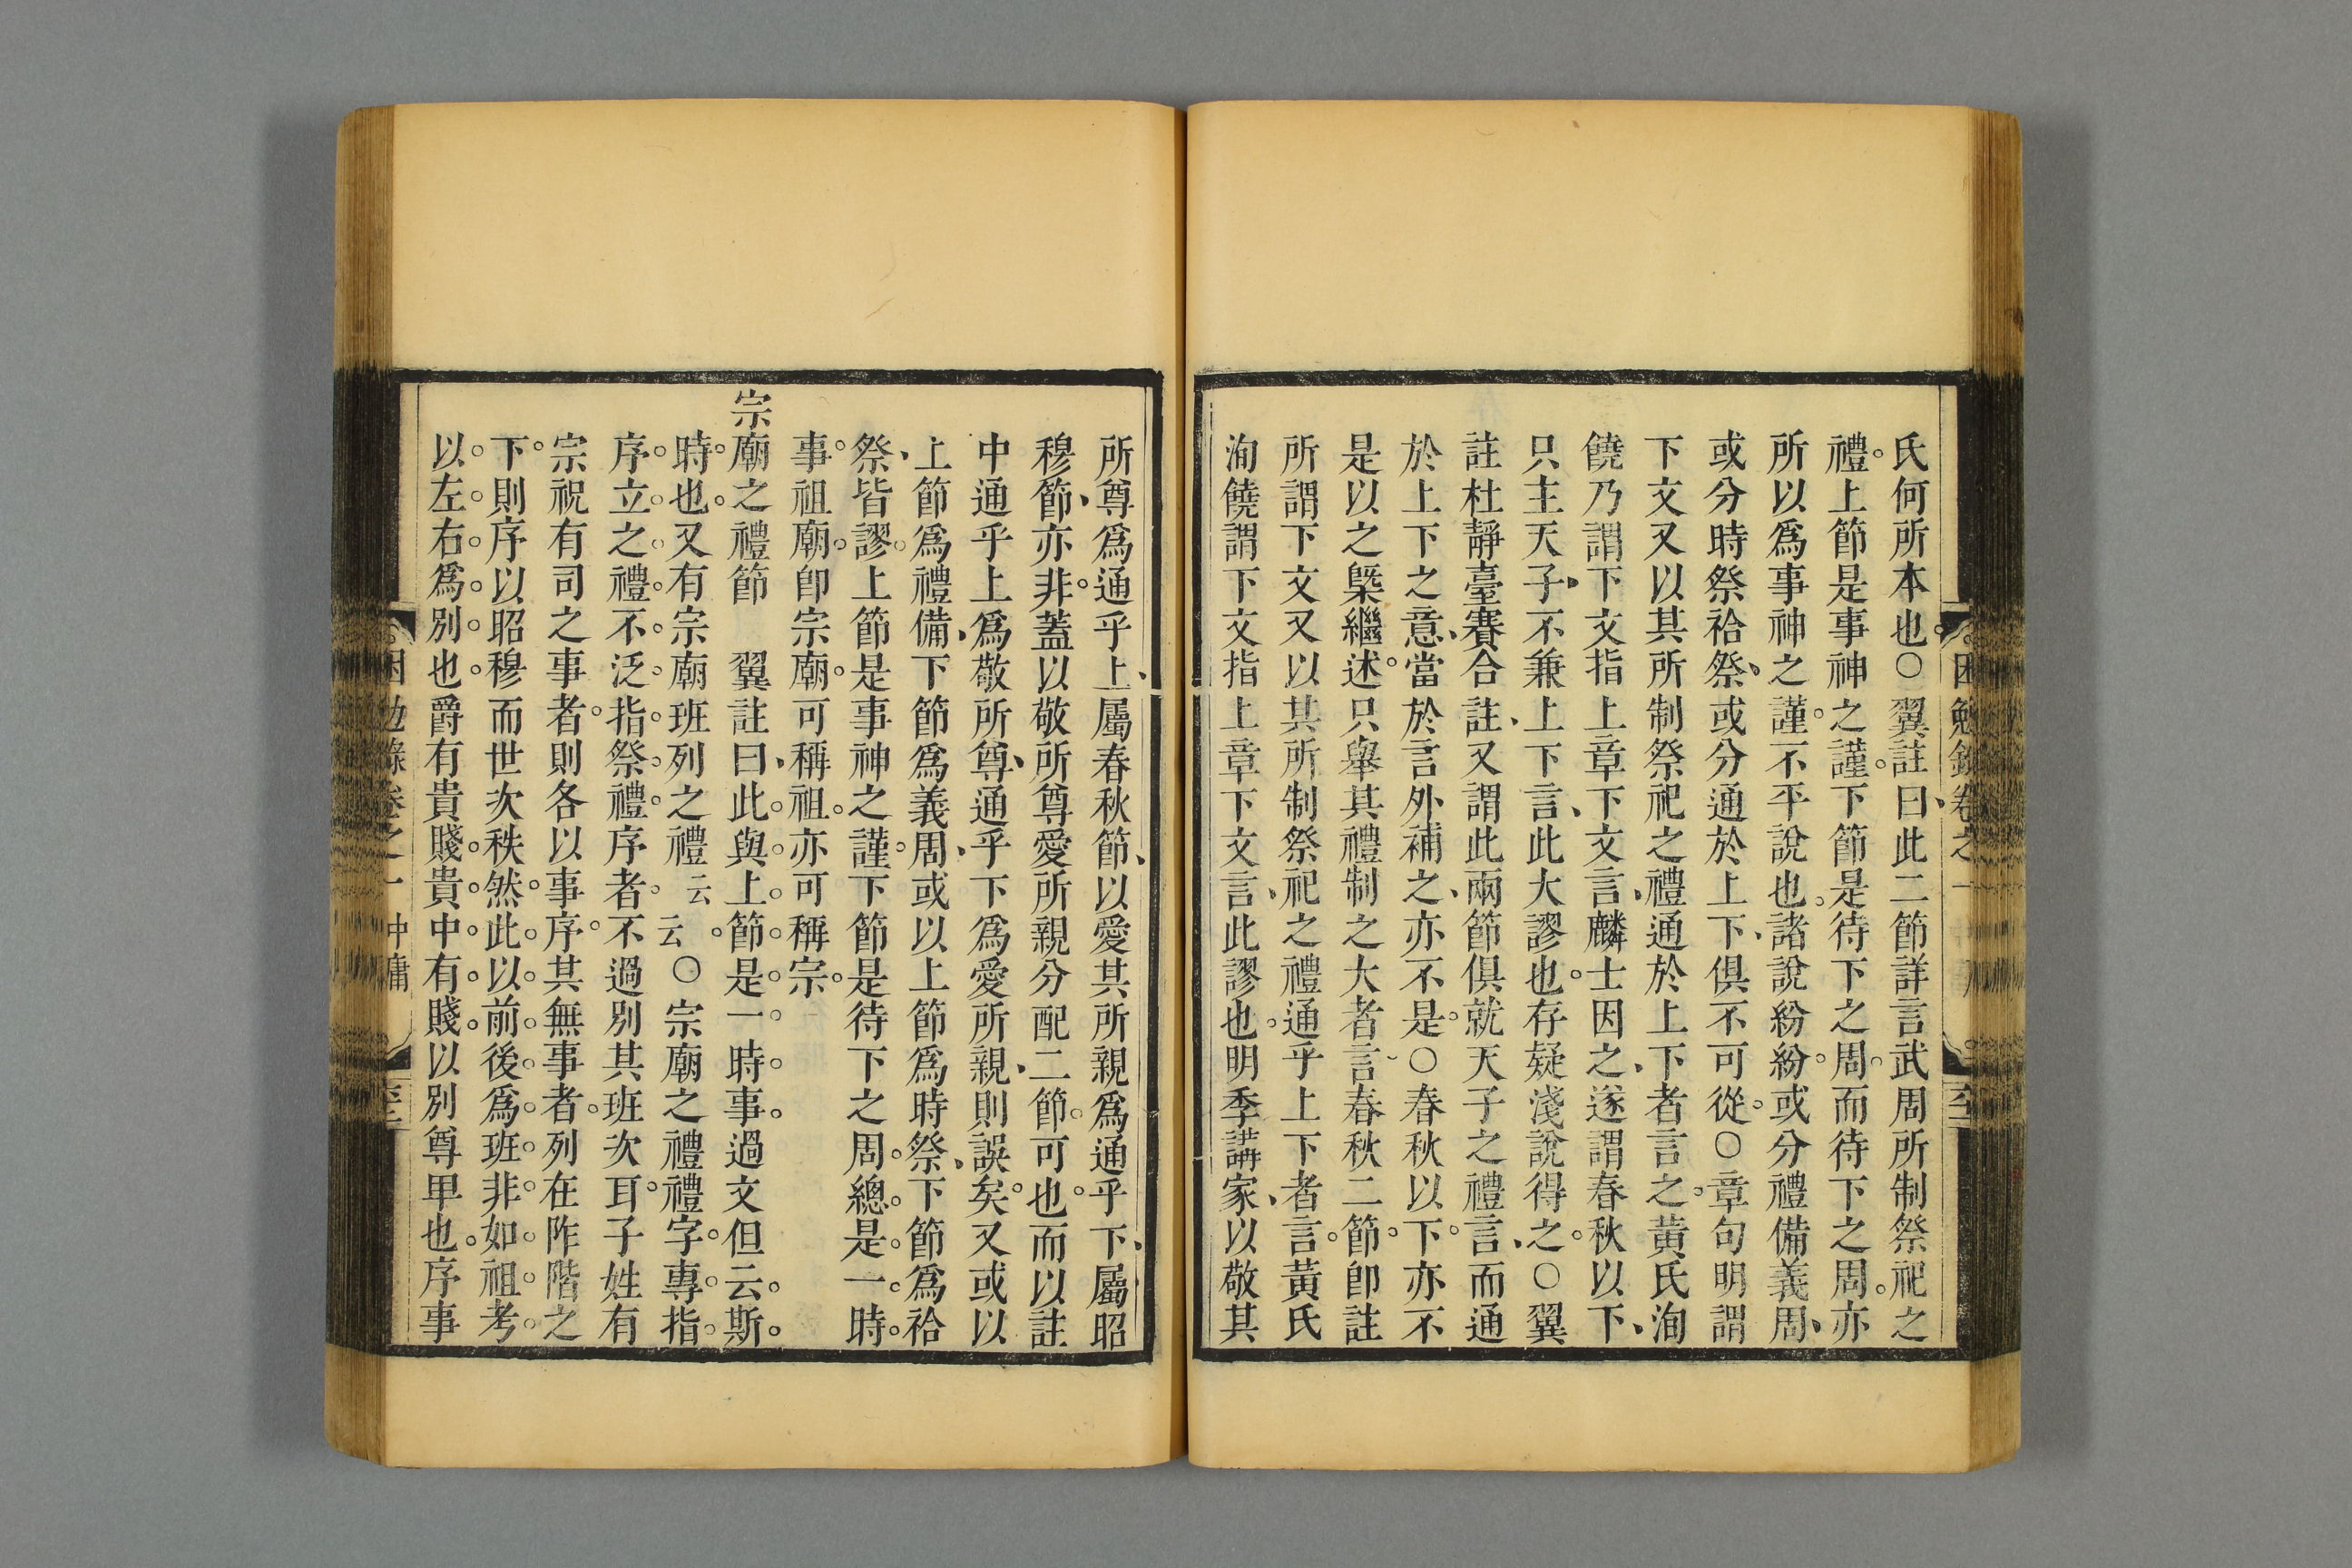 氏何所本也○翼註曰此二節詳言武周所制祭祀之
禮上節是事神之謹下節是待下之周而待下之周亦
所以爲事神之謹不平說也諸說紛紛或分禮備義周
或分時祭祫祭或分通於上下俱不可從○章句明謂
下文又以其所制祭祀之禮通於上下者言之黃氏洵
饒乃謂下文指上章下文言麟士因之遂謂春秋以下
只主天子不兼上下言此大謬也存疑淺說得之○翼
註杜靜臺賽合註又謂此兩節俱就天子之禮言而通
於上下之意當於言外補之亦不是○春秋以下亦不
是以之槩繼述只舉其禮制之大者言春秋二節卽註
所謂下文又以其所制祭祀之禮通乎上下者言黃氏
洵饒謂下文指上章下文言此謬也明季講家以敬其
所尊爲通乎上屬春秋節以愛其所親爲通乎下屬昭
穆節亦非蓋以敬所尊愛所親分配二節可也而以註
中通乎上爲敬所尊通乎下爲愛所親則誤矣又或以
上節爲禮備下節爲義周或以上節爲時祭下節爲祫
祭皆謬上節是事神之謹下節是待下之周總是一時
事祖廟卽宗廟可稱祖亦可稱宗
宗廟之禮節 翼註曰此與上節是一時事過文但云斯
時也又有宗廟班列之禮云云○宗廟之禮禮字專指
序立之禮不泛指祭禮序者不過別其班次耳子姓有
宗祝有司之事者則各以事序其無事者列在阼階之
下則序以昭穆而世次秩然此以前後爲班非如祖考
以左右爲別也爵有貴賤貴中有賤以別尊甲也序事
困勉錄卷之一 中庸